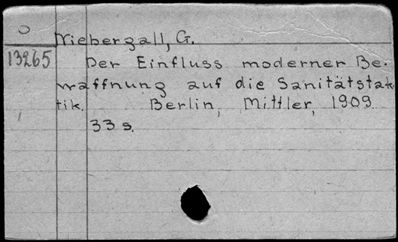 O Niebergall, G.
13265 Der Einfluss moderner Be-
waffnung auf die Sanitätstak-
tik. Berlin, Mittler, 1909.
33 s.